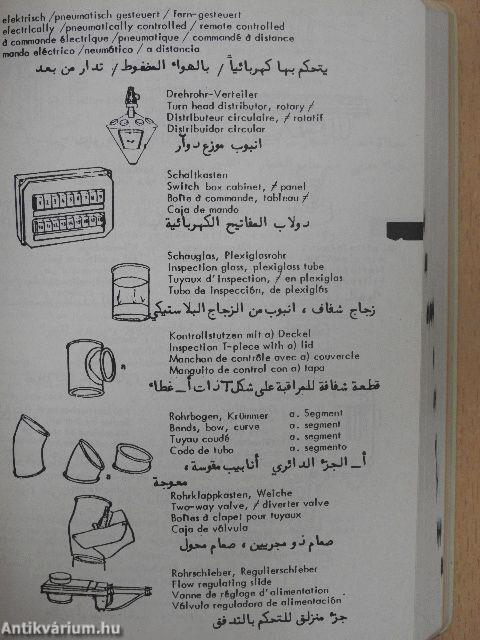 elektrisch /pneumatisch gesteuert / fern-gesteuert
electrically /pneumatically controlled / remote controlled
à commande électrique /pneumatique / commandé à distance
mando eléctrico /neumótico / a distancia
يتحكم بها كهربائياً / بالهواء المضغوط / تدار من بعد
Drehrohr-Verteiler
Turn head distributor, rotary ≠
Distributeur circulaire, ≠ rotatif
Distribuidor circular
انبوب موزع دوآر
Schaltkasten
Switch box cabinet, ≠ panel
Boîte à commande, tableau ≠
Caja de mando
دولاب المفاتيح الكهربائية
Schauglas, Plexiglasrohr
Inspection glass, plexiglass tube
Tuyaux d'inspection, ≠ en plexiglas
Tubo de inspección, de plexiglós
زجاج شفاف ، انبوب من الزجاج البلاستيكي
Kontrollstutzen mit a) Deckel
Inspection T-piece with a) lid
Manchon de contrôle avec a) couvercle
Manguito de control con a) tapa
قطعة شفافة للمراقبة على شكل T ذات أ ـ غطاء
a
Rohrbogen, Krümmer a. Segment
Bends, bow, curve a. segment
Tuyau coudé a. segment
Codo de tubo a. segmento
أ ـ الجزء الدائري أنابيب مقوسة ،
معوجة
a
Rohrklappkasten, Weiche
Two-way valve, ≠ diverter valve
Boîtes à clapet pour tuyaux
Caja de válvula
صمام ذو مجريين ، صمام محول
Rohrschieber, Regulierschieber
Flow regulating slide
Vanne de réglage d'alimentation
Válvula reguladora de alimentación
جزء منزلق للتحكم بالتدفق
Antikvárium.hu